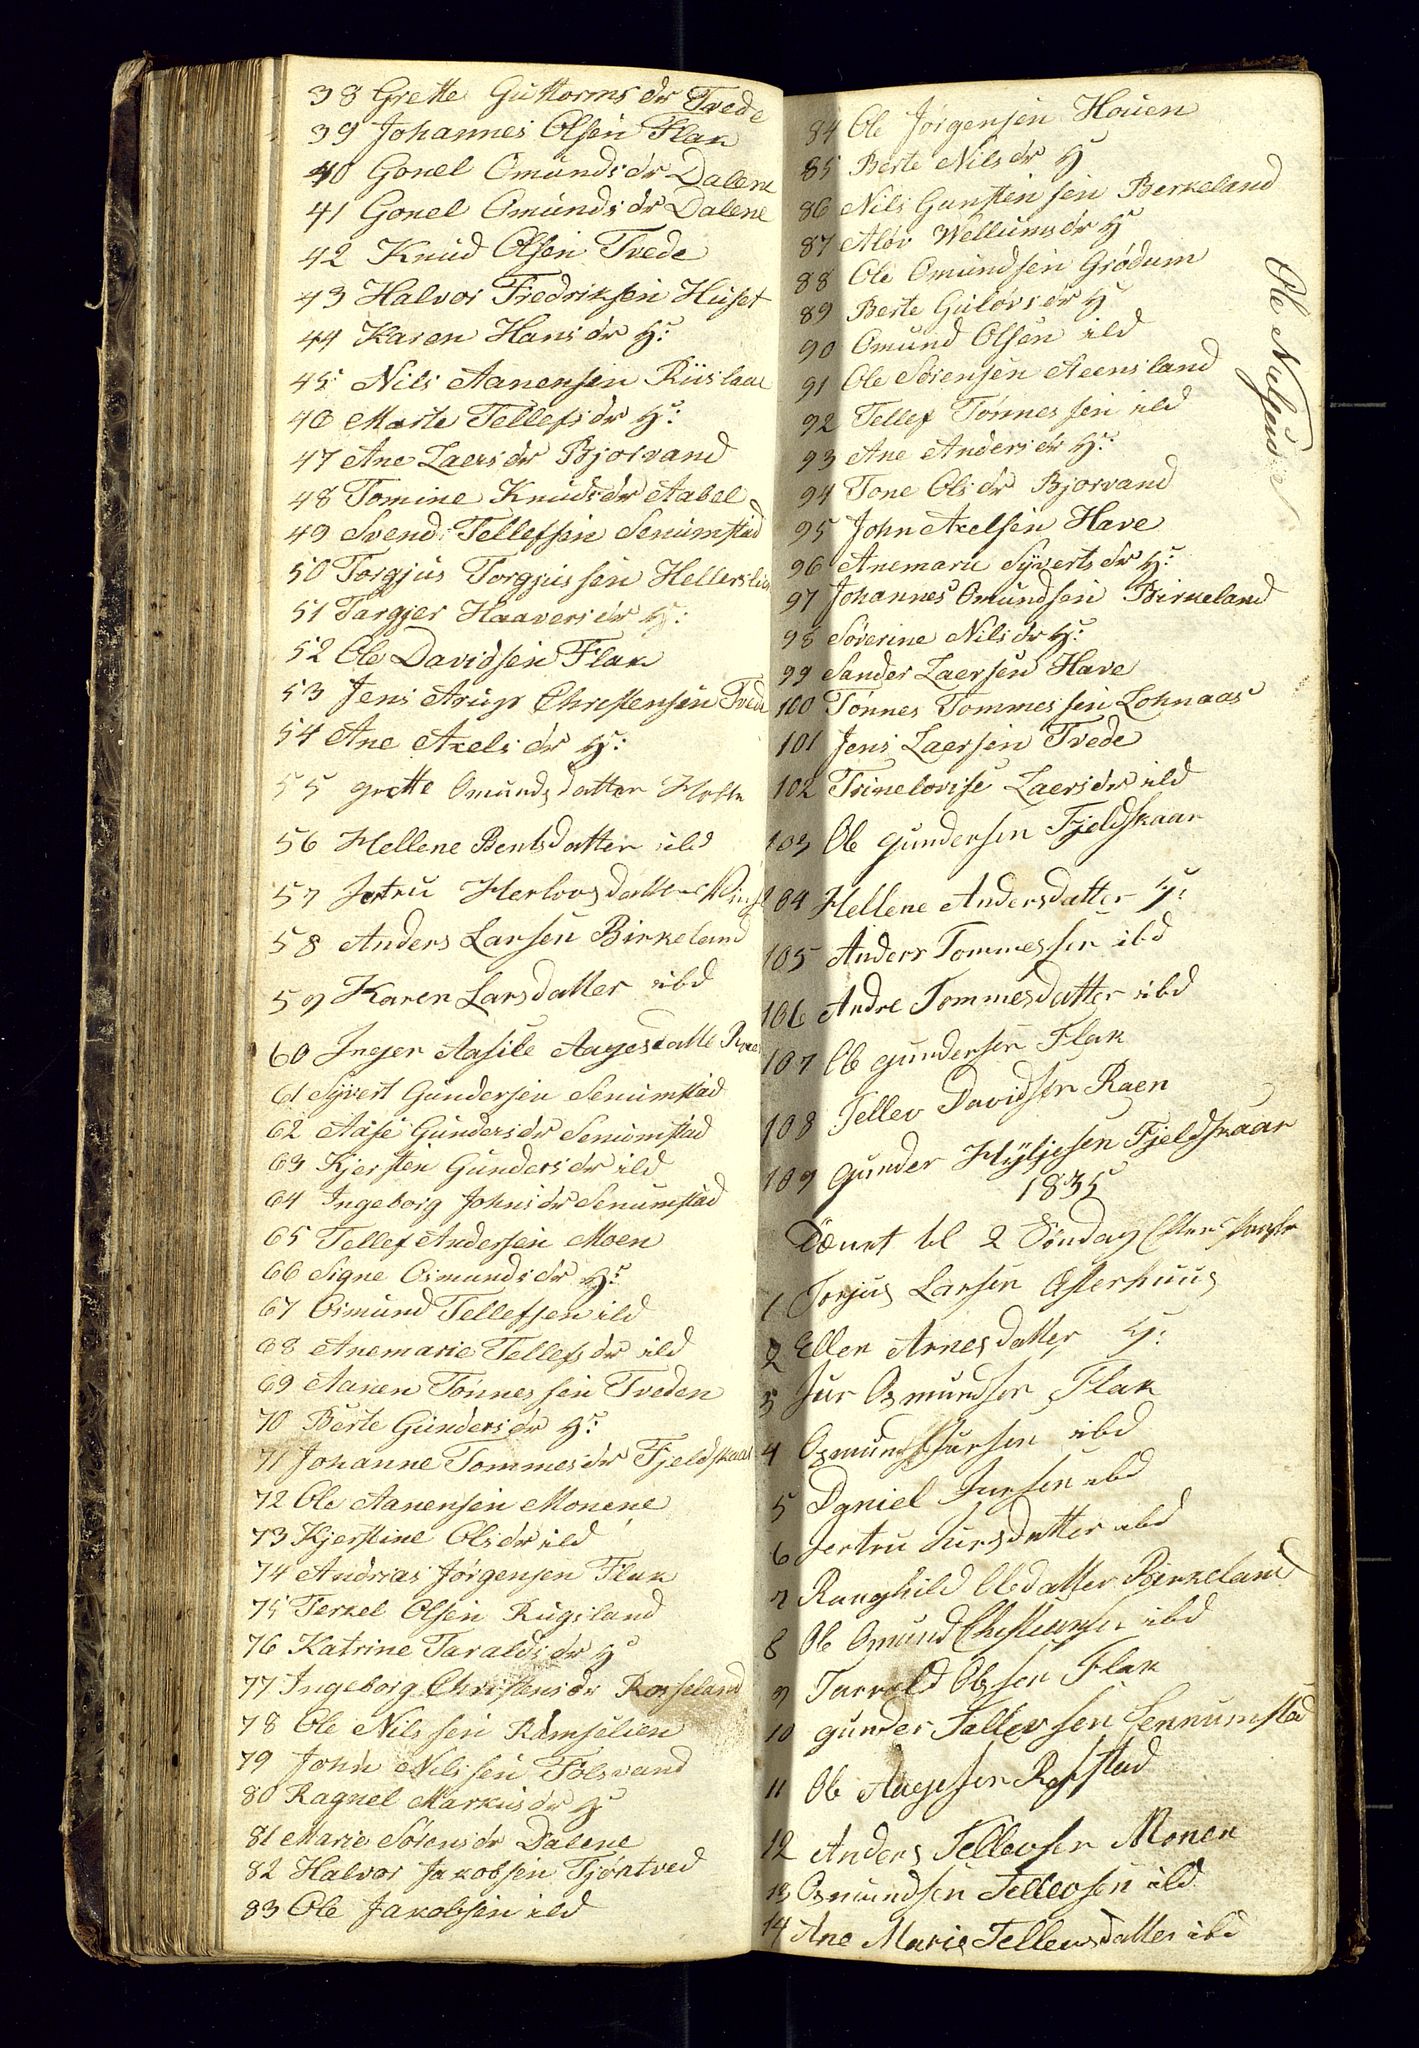 38 Grette Guttorms dr Tvede
39 Johannes Olsen Flak
40 Gonel Omunds dr Dalene
41 Gonel Omunds dr Dalene
42 Knud Olsen Tvede
43 Halvor Fredriksen Huset
44 Karen Hans dr H:
45 Nils Aanensen Riislaae
46 Marte Tellefs dr H:
47 Ane Laers dr Bjorvand
48 Tomine Knuds dr Aabel
49 Svend Tellefsen Senumstad
50 Torgjus Torgjussen Hellerslien
51 Targjer Haavers dr H:
52 Ole Davidsen Flak
53 Jens Arup Chrestensen Tvede
54 Ane Axels dr H:
55 grette Omundsdatter
56 Hellene Bentsdatter ibd
57 Jertru Herlovsdatter
58 Anders Larsen Birkeland
59 Karen Larsdatter ibd
60 Inger Aasile Aagesdatte
61 Syvert Gundersen Senumstad
62 Aase Gunders dr Senumstad
63 Kjersten Gunders dr ild
64 Ingeborg Johns dr Senumstad
65 Tellef Andersen Moen
66 Signe Osmunds dr H:
67 Osmund Tellefsen ild
68 Anemarie Tellefs dr ild
69 Aanen Tønnessen Tveden
70 Berte Gunders dr H:
71 Johanne Tommes dr Fjeldskaar
72 Ole Aanensen Monene
73 Kjerstine Ols dr ild
74 Andrias Jørgensen Flak
75 Terkel Olsen Rugsland
76 Katrine Taralds dr H
77 Ingeborg Christens dr Rosseland
78 Ole Nilssen Ramselien
79 John Nilssen Folsvand
80 Ragnel Markus dr H
81 Marie Sørens dr Dalene
82 Halvor Jakobsen Tjøntved
83 Ole Jakobsen ild
84 Ole Jørgensen Houen
85 Berte Nils dr H
86 Nils Gunstensen Berkeland
87 Aløv Wellums dr H
88 Ole Omundsen Grødum
89 Berte Guløvs dr H
90 Omund Olsen ild
91 Ole Sørensen Steensland
92 Tellef Tønnessen ild
93 Ane Anders dr H:
94 Tone Ols dr Bjorvand
95 John Axelsen Have
96 Anemarie Syverts dr H:
97 Johannes Omundsen Birkeland
98 Søverine Nils dr H:
99 Sander Laersen Have
100 Tønnes Tommessen Lohnaas
101 Jens Laersen Tvede
102 Trinelovise Laers dr ild
103 Ole gundersen Fjeldskaar
104 Hellene Andersdatter H:
105 Anders Tommessen ibd
106 Andre Tommesdatter ibd
107 Ole gundersen Flak
108 Tellev Davidsen Raen
109 gunder Hyljesen Fjeldskaar
1835
til 2 Søndag Efter
1 Torjus Larsen Østerhuus
2 Ellen Arnesdatter H:
3 Jur Osmundsen Flak
4 Osmund Jursen ibd
5 Daniel Jursen ibd
6 Jertru Jursdatter ibd
7 Ranghild Olsdatter Birkeland
8 Ole Omund Christensen ibd
9 Tarrald Olssen Flak
10 gunder Tellevsen Sennumstad
11 Ole Aagesen
12 Anders Tellevsen Monen
13 Osmundsen Tellevsen ild
14 Ane Marie Tellevsdatter ibd
Ole